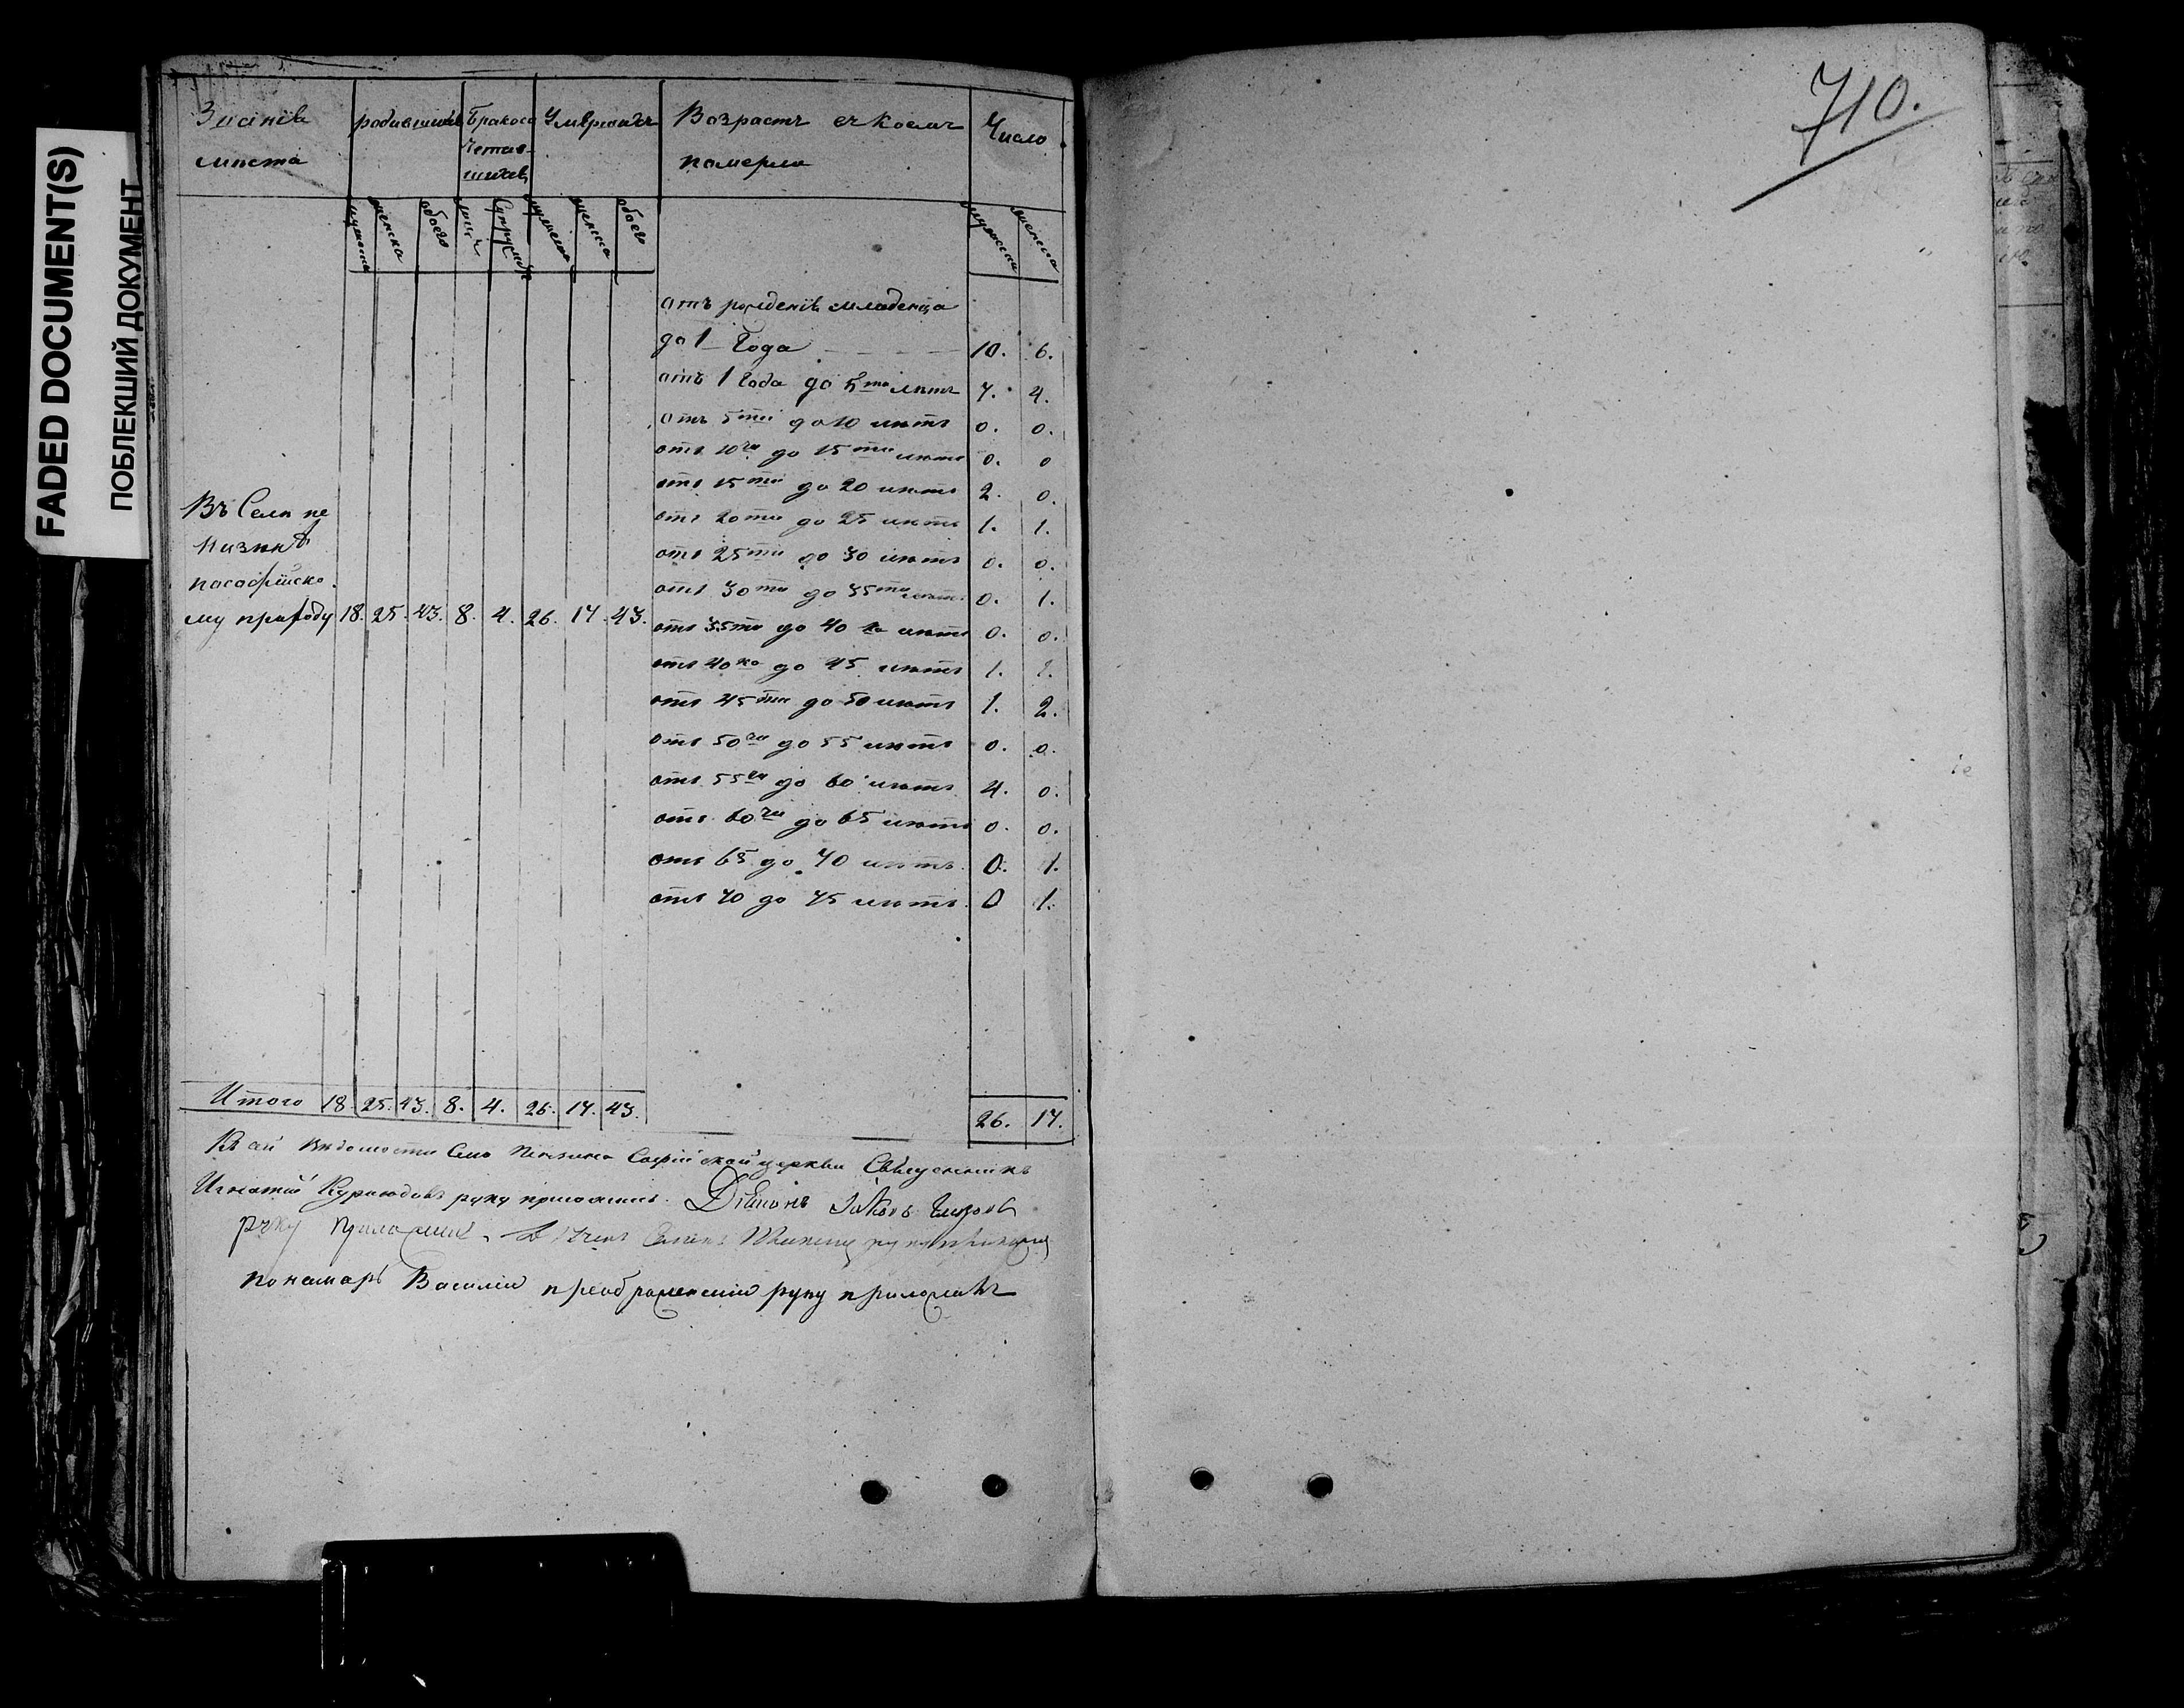 FADED DOCUMENT(S)
ПОБЛЕКШИЙ ДОКУМЕНТ
710.
Званіе родившихся Бракосо Умершихъ Возрастъ въ коемъ Число
мѣста четав- померли
шихся
мужеска женска обоего лицъ Супруж мужеска женска обоего мужеска женска
отъ рожденія младенца
до 1 Года 10. 6.
отъ 1 Года до 5ти лѣтъ 7. 4.
отъ 5ти до 10 лѣтъ 0. 0.
отъ 10ти до 15ти лѣтъ 0. 0
отъ 15ти до 20 лѣтъ 2. 0.
отъ 20ти до 25 лѣтъ 1. 1.
отъ 25ти до 30 лѣтъ 0. 0.
отъ 30ти до 35ти лѣтъ 0. 1.
отъ 35ти до 40 ка лѣтъ 0. 0.
отъ 40ка до 45 лѣтъ 1. 1.
отъ 45ти до 50 лѣтъ 1. 2.
отъ 50ти до 55 лѣтъ 0. 0.
отъ 55ти до 60 лѣтъ 4. 0.
отъ 60ти до 65 лѣтъ 0. 0.
отъ 65 до 70 лѣтъ 0. 1.
отъ 70 до 75 лѣтъ 0 1.
Въ Селѣ пе
нзинѣ
пасофійско
му приходу 18. 25. 43. 8. 4. 26. 17. 43.
Итого 18. 25. 43. 8. 4. 26. 17. 43. 26. 17.
Къ сей Вѣдомости Села Пензина Софійской церкви Священникъ
Игнатій руку приложилъ. Діаконъ Іаковъ
руку приложилъ.
понамарь Василій преображенскій руку приложилъ